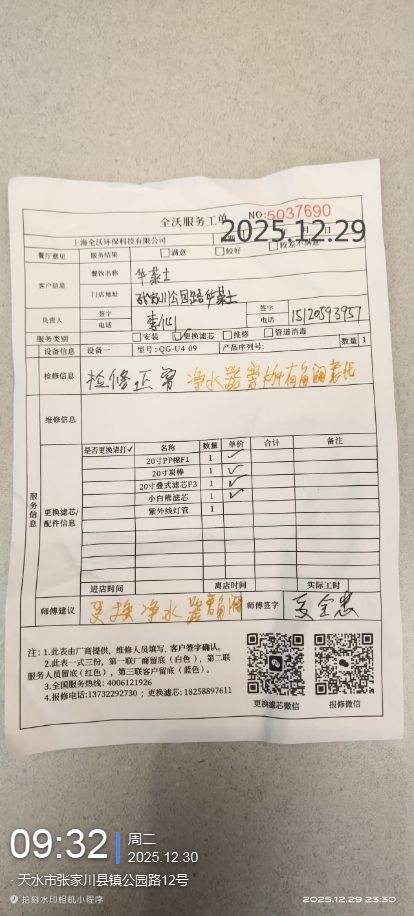 全沃服务工单
NO:5037690
2025.12.29
上海全沃环保科技有限公司
日
餐厅意见 服务结果 满意 较好 较差不满意
客户信息 餐饮名称 华莱士
门店地址 张家川公园路华莱士
负责人 签字 电话 签字 电话 15120593957
服务类别 安装 更换滤芯 维修 管道消毒
设备信息 设备一 型号:QG-U4-09 产品序列号: 数量 1
检修信息 检修正常 净水器
维修信息
服务信息
更换滤芯/配件信息
是否更换请打✓ 名称 数量 单价 合计 备注
20寸PP棉F1 1 ✓
20寸炭棒 1 ✓
20寸叠式滤芯F3 1 ✓
小白熊滤芯 1 ✓
紫外线灯管 1
进店时间 离店时间 实际工时
师傅建议 更换净水器 师傅签字
注: 1.此表由厂商提供, 维修人员填写, 客户签字确认。
2.此表一式三份, 第一联厂商留底 (白色), 第二联
服务人员留底(红色), 第三联客户留底 (蓝色)。
3.全国服务热线: 4006121926
4.报修电话:13732292730 ; 更换滤芯: 18258897611
更换滤芯微信 报修微信
09:32 周二
2025.12.30
天水市张家川县镇公园路12号
拍照水印相机小程序
2025.12.29 23:30